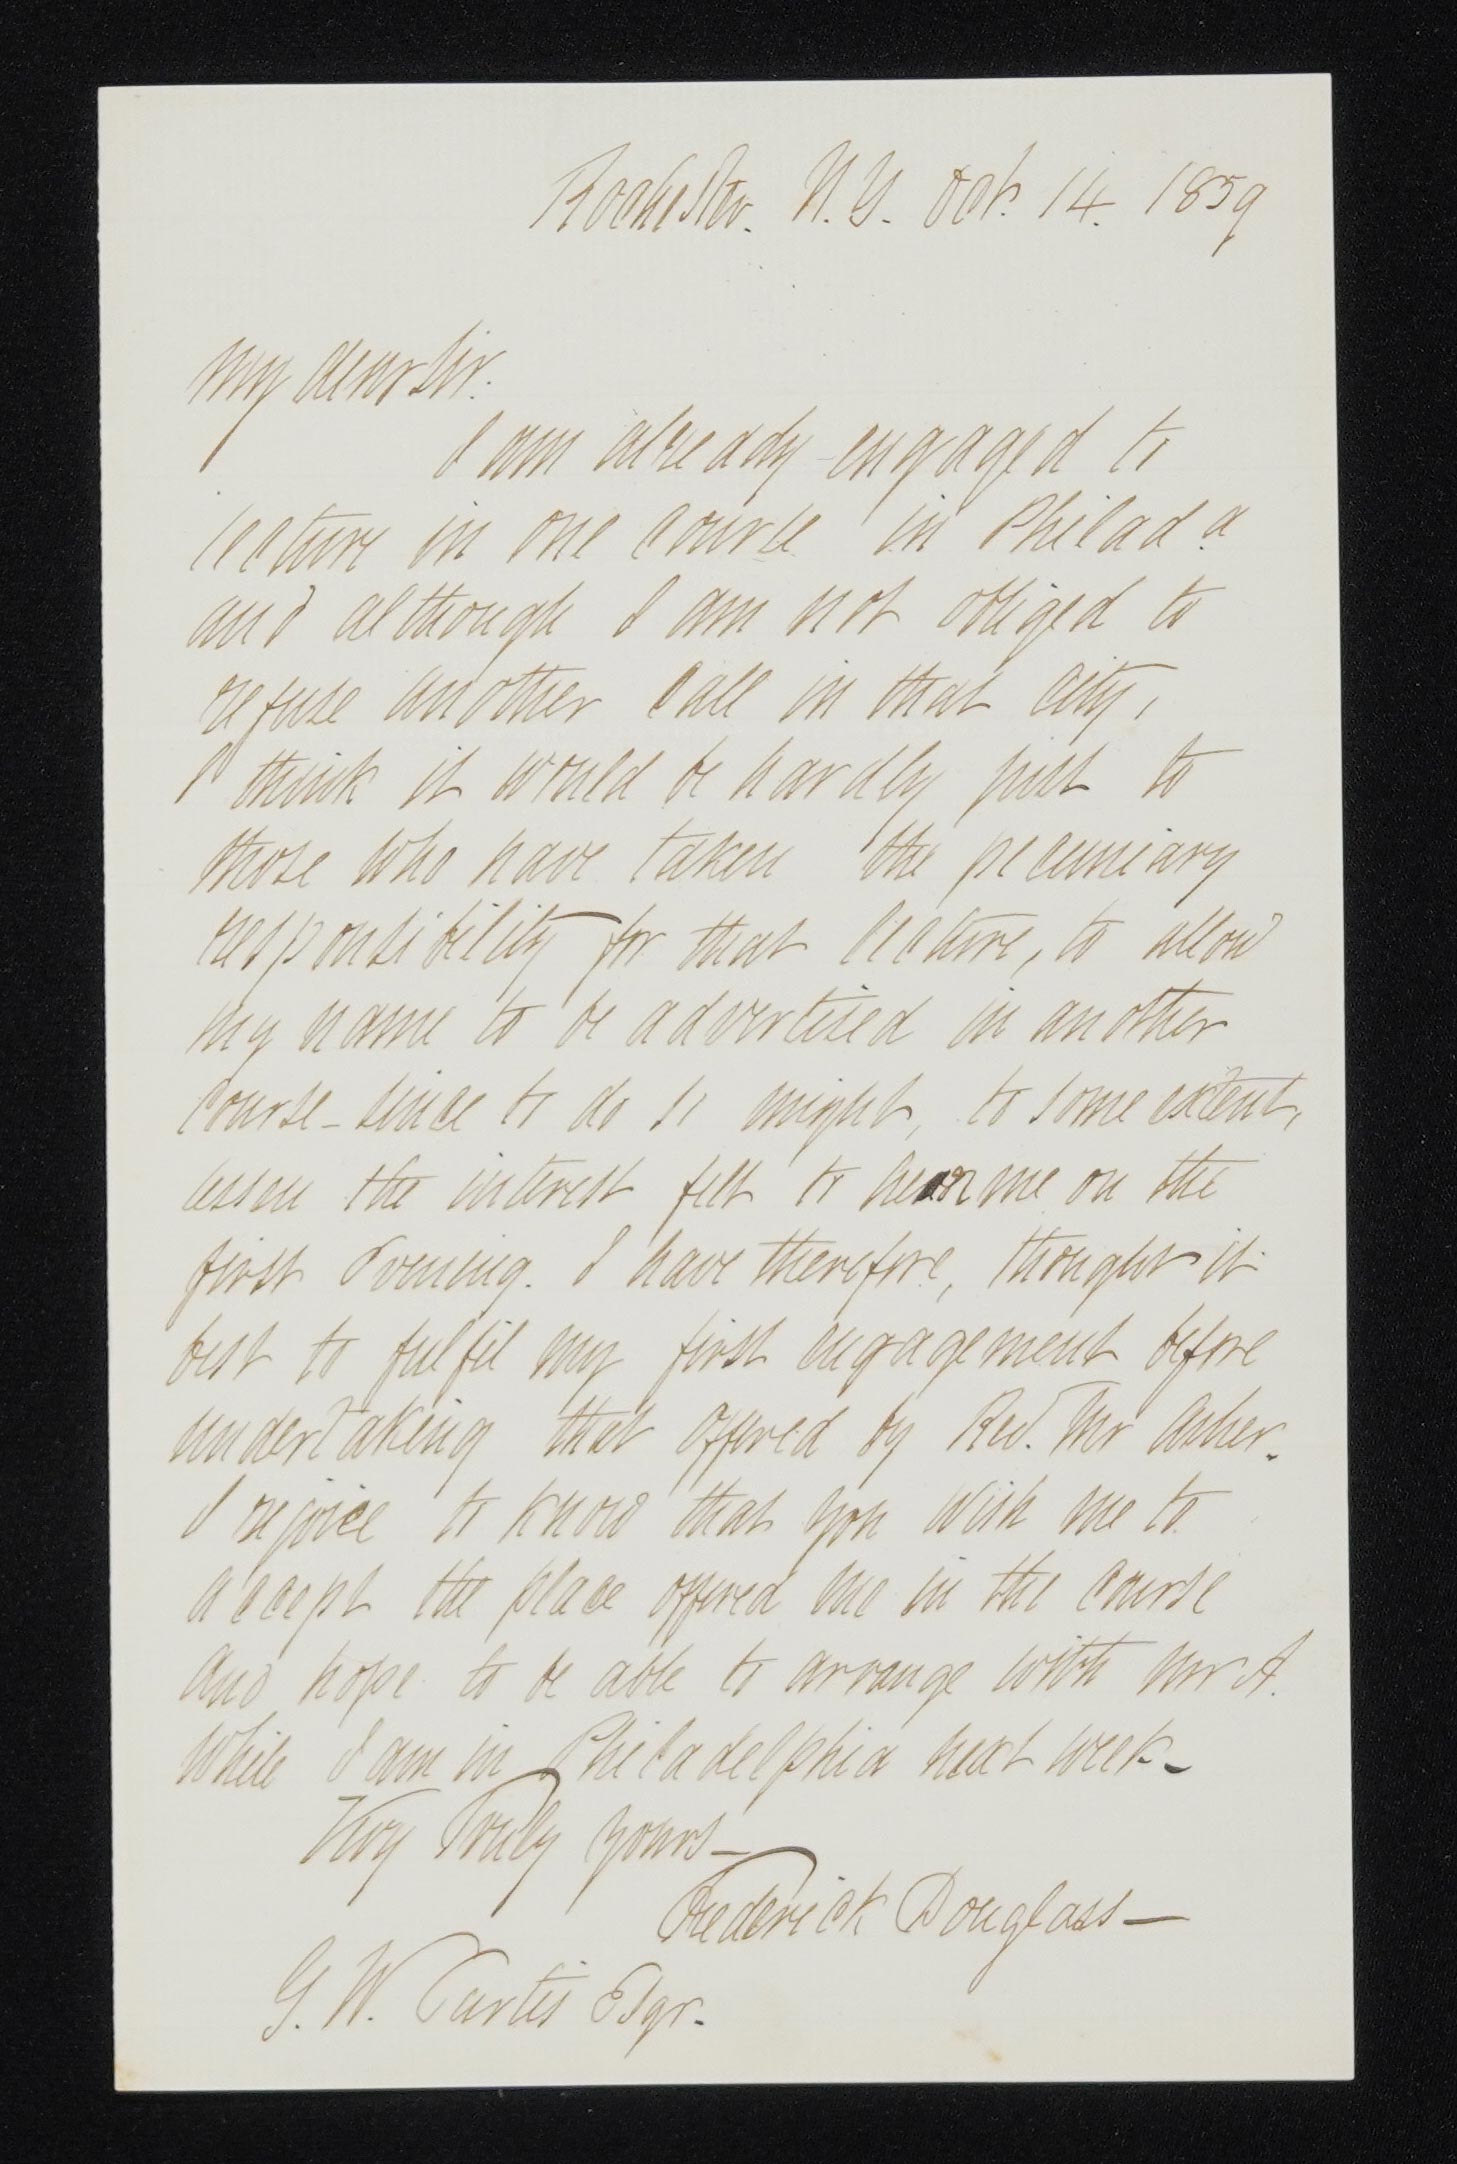 Rochester. N.Y. Oct. 14. 1859
My dear Sir.
I am already engaged to
lecture in one course in Philada
and although I am not obliged to
refuse another call in that city,
I think it would be hardly just to
those who have taken the pecuniary
responsibility for that lecture, to allow
my name to be advertised in another
course - since to do so might, to some extent,
lessen the interest felt to hear me on the
first Evening. I have therefore, thought it
best to fulfil my first engagement before
undertaking that offered by Rev. Mr Asher.
I rejoice to know that you wish me to
accept the place offered me in the course
and hope to be able to arrange with Mr A.
while I am in Philadelphia next week -
Very Truly yours -
Frederick Douglass -
G. W. Curtis Esqr.